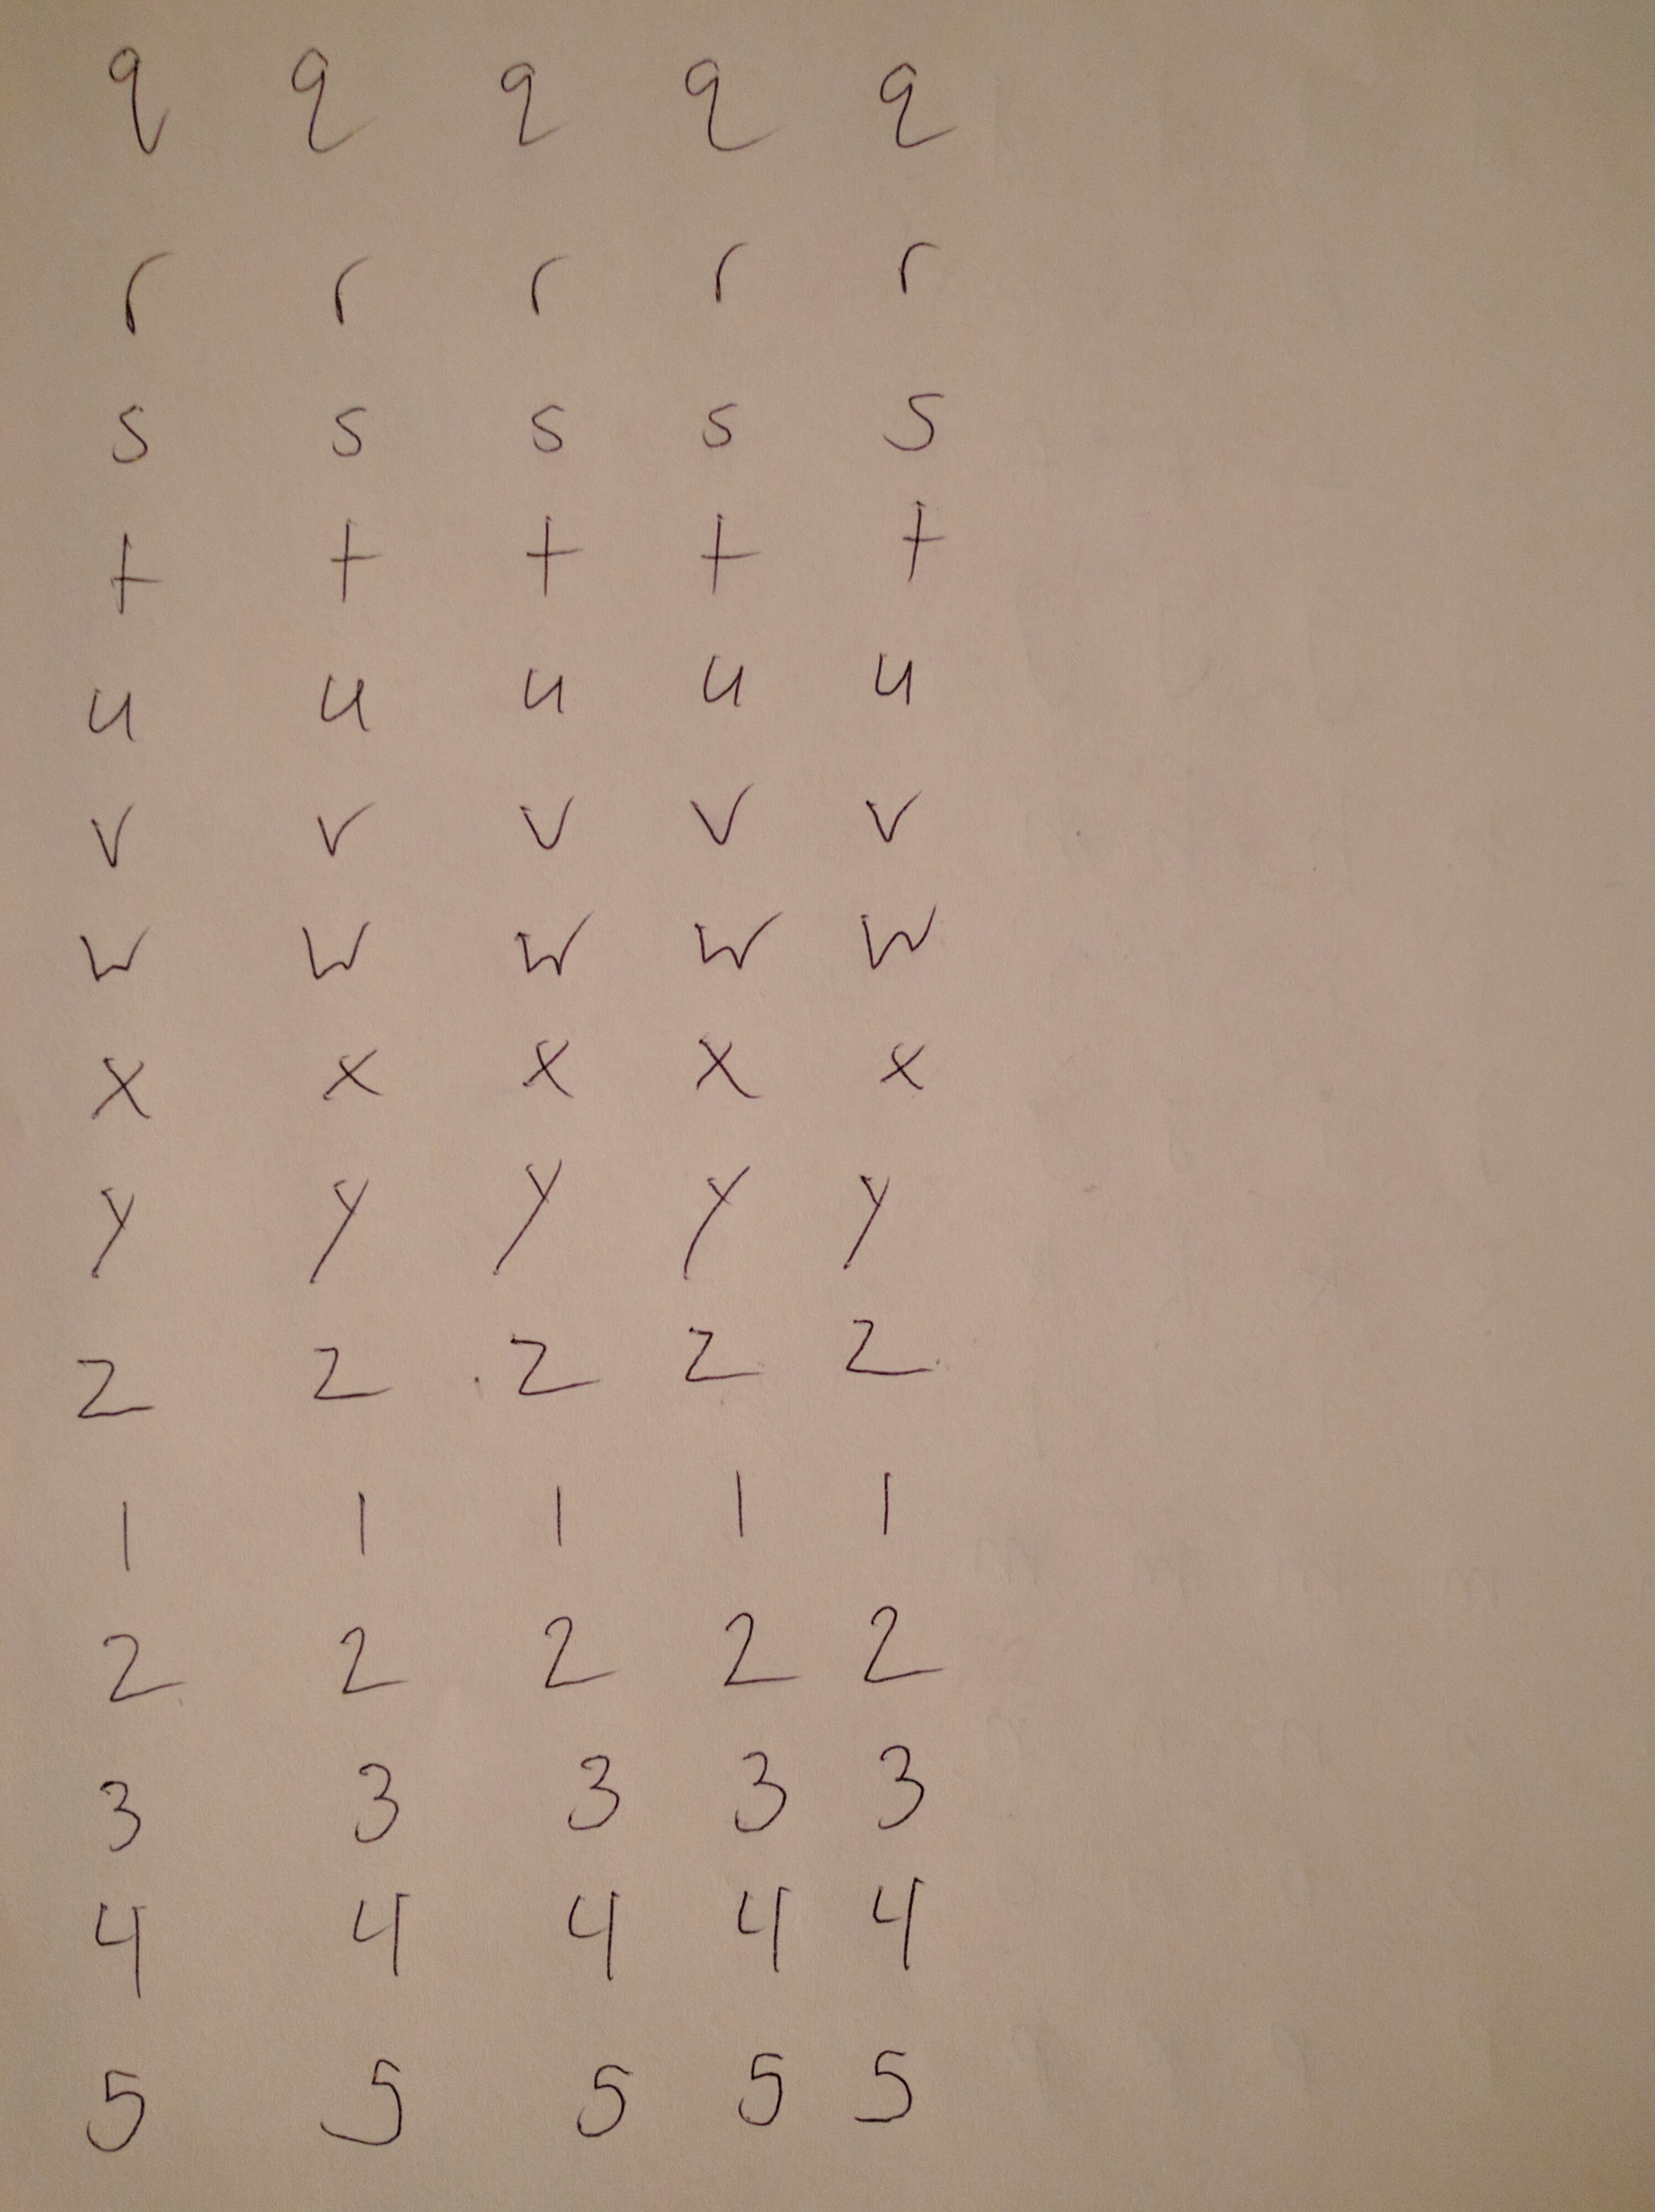 q q q q q
r r r r r
s s s s s
t t t t t
u u u u u
v v v v v
w w w w w
x x x x x
y y y y y
z z z z z
1 1 1 1 1
2 2 2 2 2
3 3 3 3 3
4 4 4 4 4
5 5 5 5 5